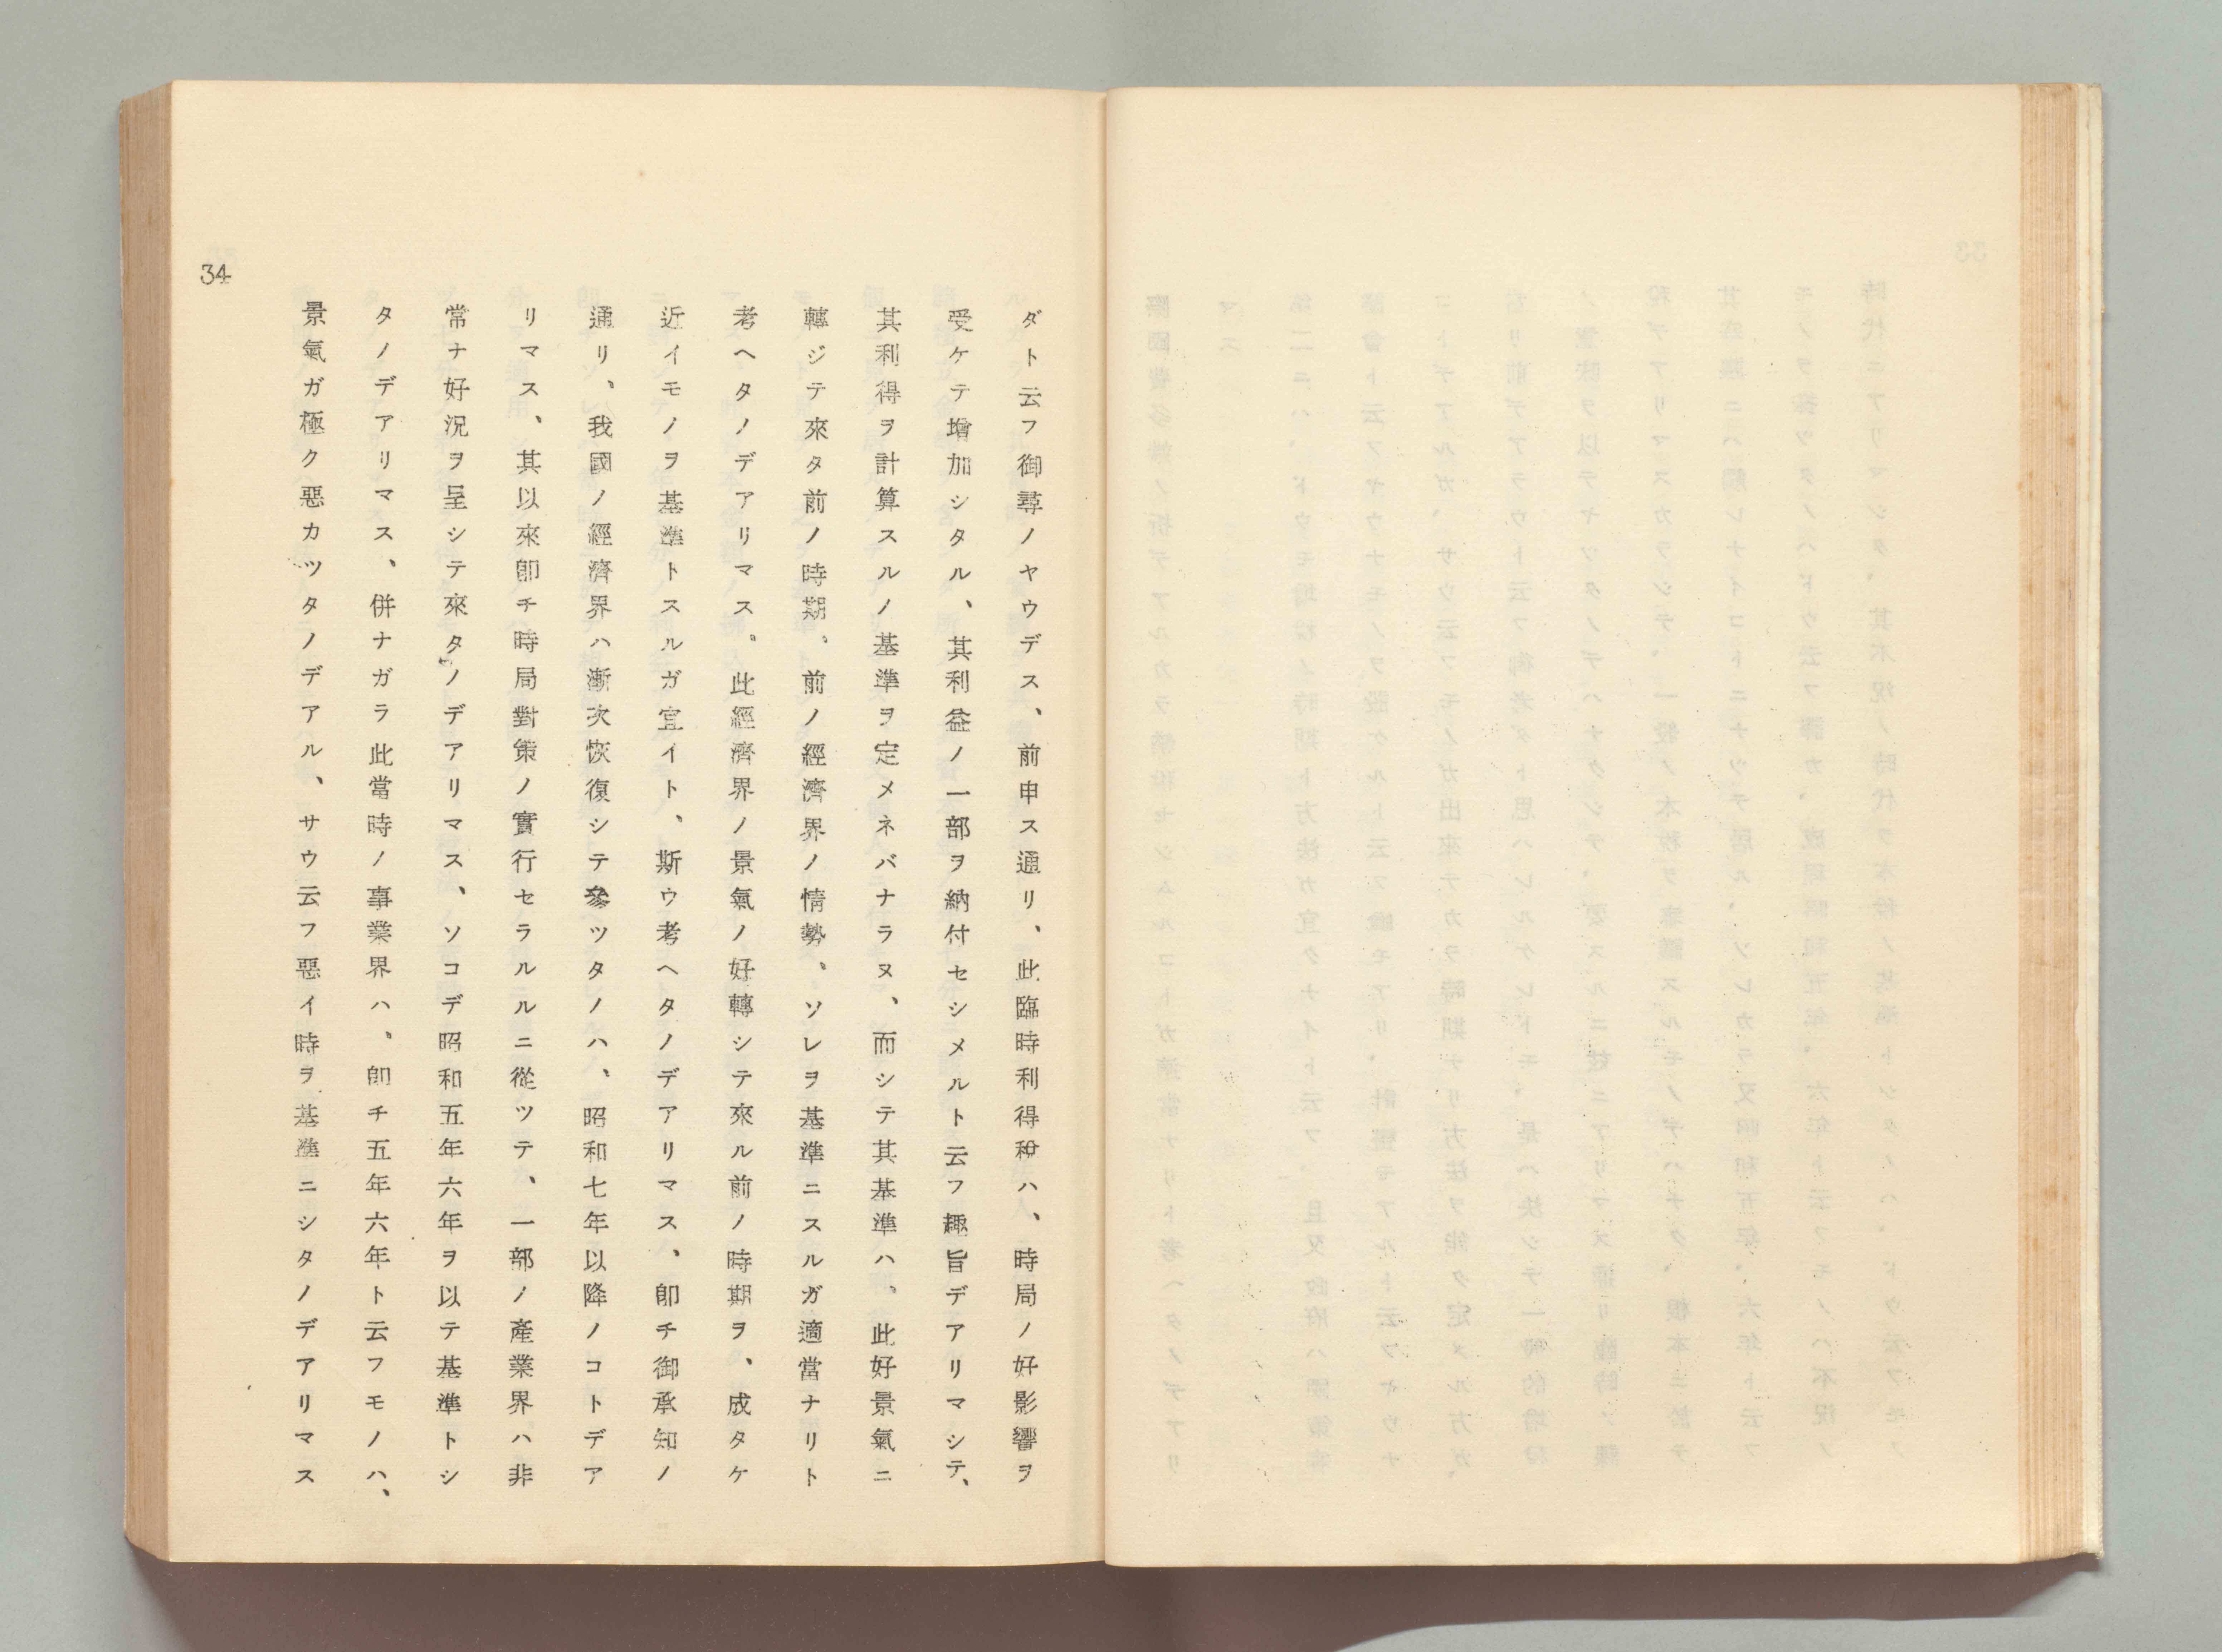 ダト云フ御尋ノヤウデス、前申ス通リ、此臨時利得稅ハ、時局ノ好影響ヲ
受ケテ增加シタル、其利益ノ一部ヲ納付セシメルト云フ趣旨デアリマシテ、
其利得ヲ計算スルノ基準ヲ定メネバナラヌ、而シテ其基準ハ、此好景氣ニ
轉ジテ來タ前ノ時期、前ノ經濟界ノ情勢、ソレヲ基準ニスルガ適當ナリト
考ヘタノデアリマス。此經濟界ノ景氣ノ好轉シテ來ル前ノ時期ヲ、成タケ
近イモノヲ基準トスルガ宜イト、斯ウ考ヘタノデアリマス、卽チ御承知ノ
通リ、我國ノ經濟界ハ漸次恢復シテ參ツタノハ、昭和七年以降ノコトデア
リマス、其以來卽チ時局對策ノ實行セラルルニ從ツテ、一部ノ產業界ハ非
常ナ好況ヲ呈シテ來タノデアリマス、ソコデ昭和五年六年ヲ以テ基準トシ
タノデアリマス、併ナガラ此當時ノ事業界ハ、卽チ五年六年ト云フモノハ、
景氣ガ極ク惡カツタノデアル、サウ云フ惡イ時ヲ基準ニシタノデアリマス
34